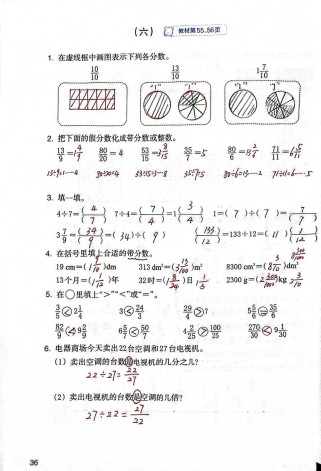 (六) 教材第55、56页
1. 在虚线框中画图表示下列各分数。
10/10 13/10 1 7/10
"1" "1"
2. 把下面的假分数化成带分数或整数。
13/9=1 4/9 80/20=4 53/15=3 8/15 35/7=5 80/6= 71/11=6 5/11
13÷9=1……4 80÷20=4 53÷15=3……8 35÷7=5 80÷6=13……2 71÷11=6……5
3. 填一填。
4÷7=(4)/(7) 7÷4=(7)/(4)=1(3)/(4) 1=(7)÷(7)=(7)/(7)
3 7/9=(34)/(9)=(34)÷(9) (133)/(12)=133÷12=(11)(1)/(12)
4. 在括号里填上合适的带分数。
19 cm=(1 9/10)dm 313 dm²=(3 13/100)m² 8300 cm³=(8 3/10)dm³
13个月=(1 1/12)年 32时=(1 8/24)日 2300 g=(2 300/1000)kg
5. 在○里填上">""<"或"="。
3/5<2 1/3 3<24/3 29/4>7 5 5/6=35/6
82/9<9 2/9 6 5/7<50/7 4 2/25>100/25 270/30<9 1/30
6. 电器商场今天卖出22台空调和27台电视机。
(1) 卖出空调的台数是电视机的几分之几?
22÷27=22/27
(2) 卖出电视机的台数是空调的几倍?
27÷22=27/22
36